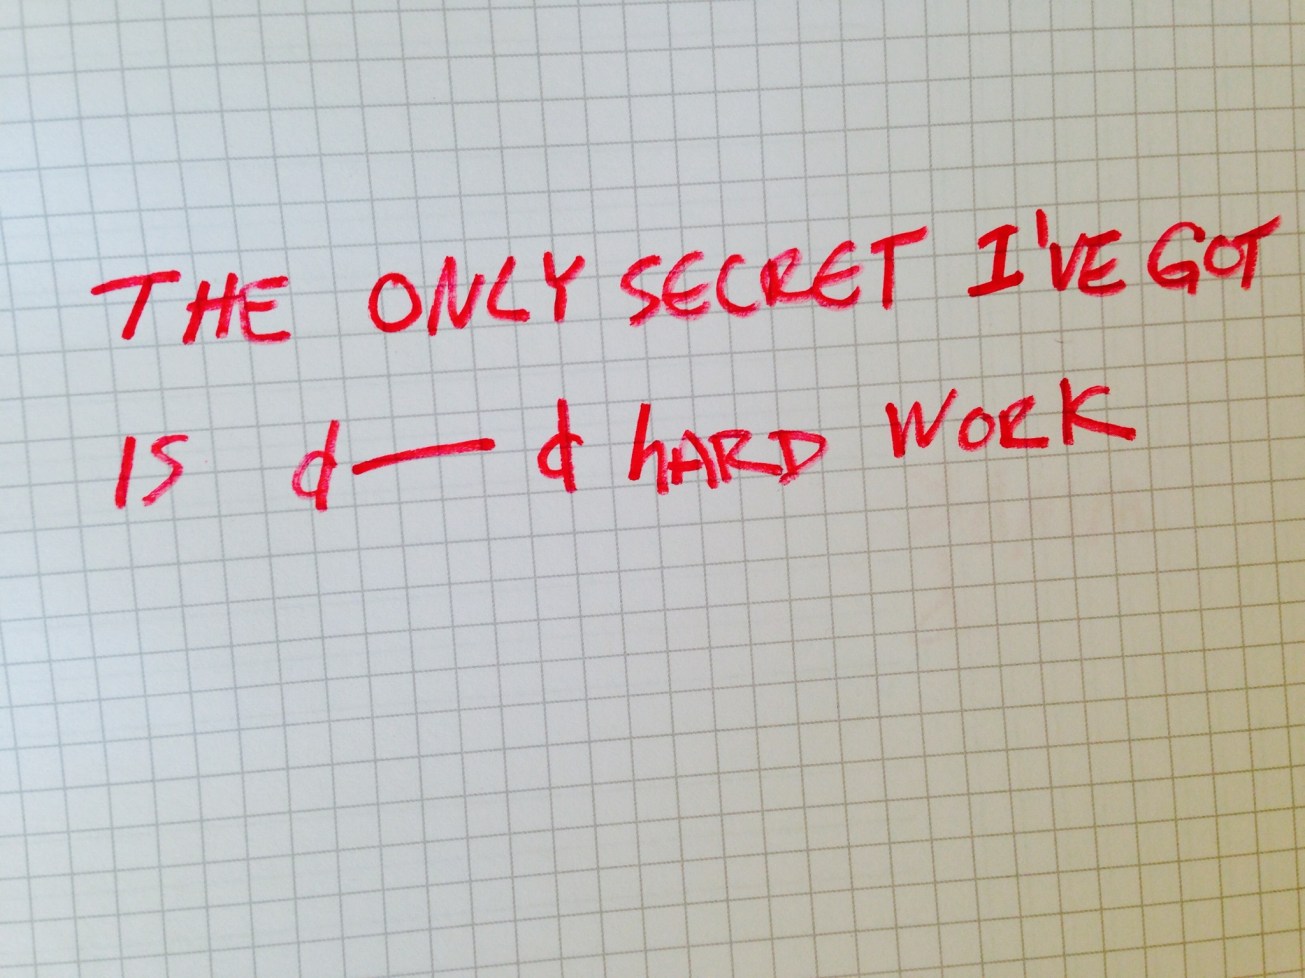 THE ONLY SECRET I'VE GOT
IS d— d HARD WORK